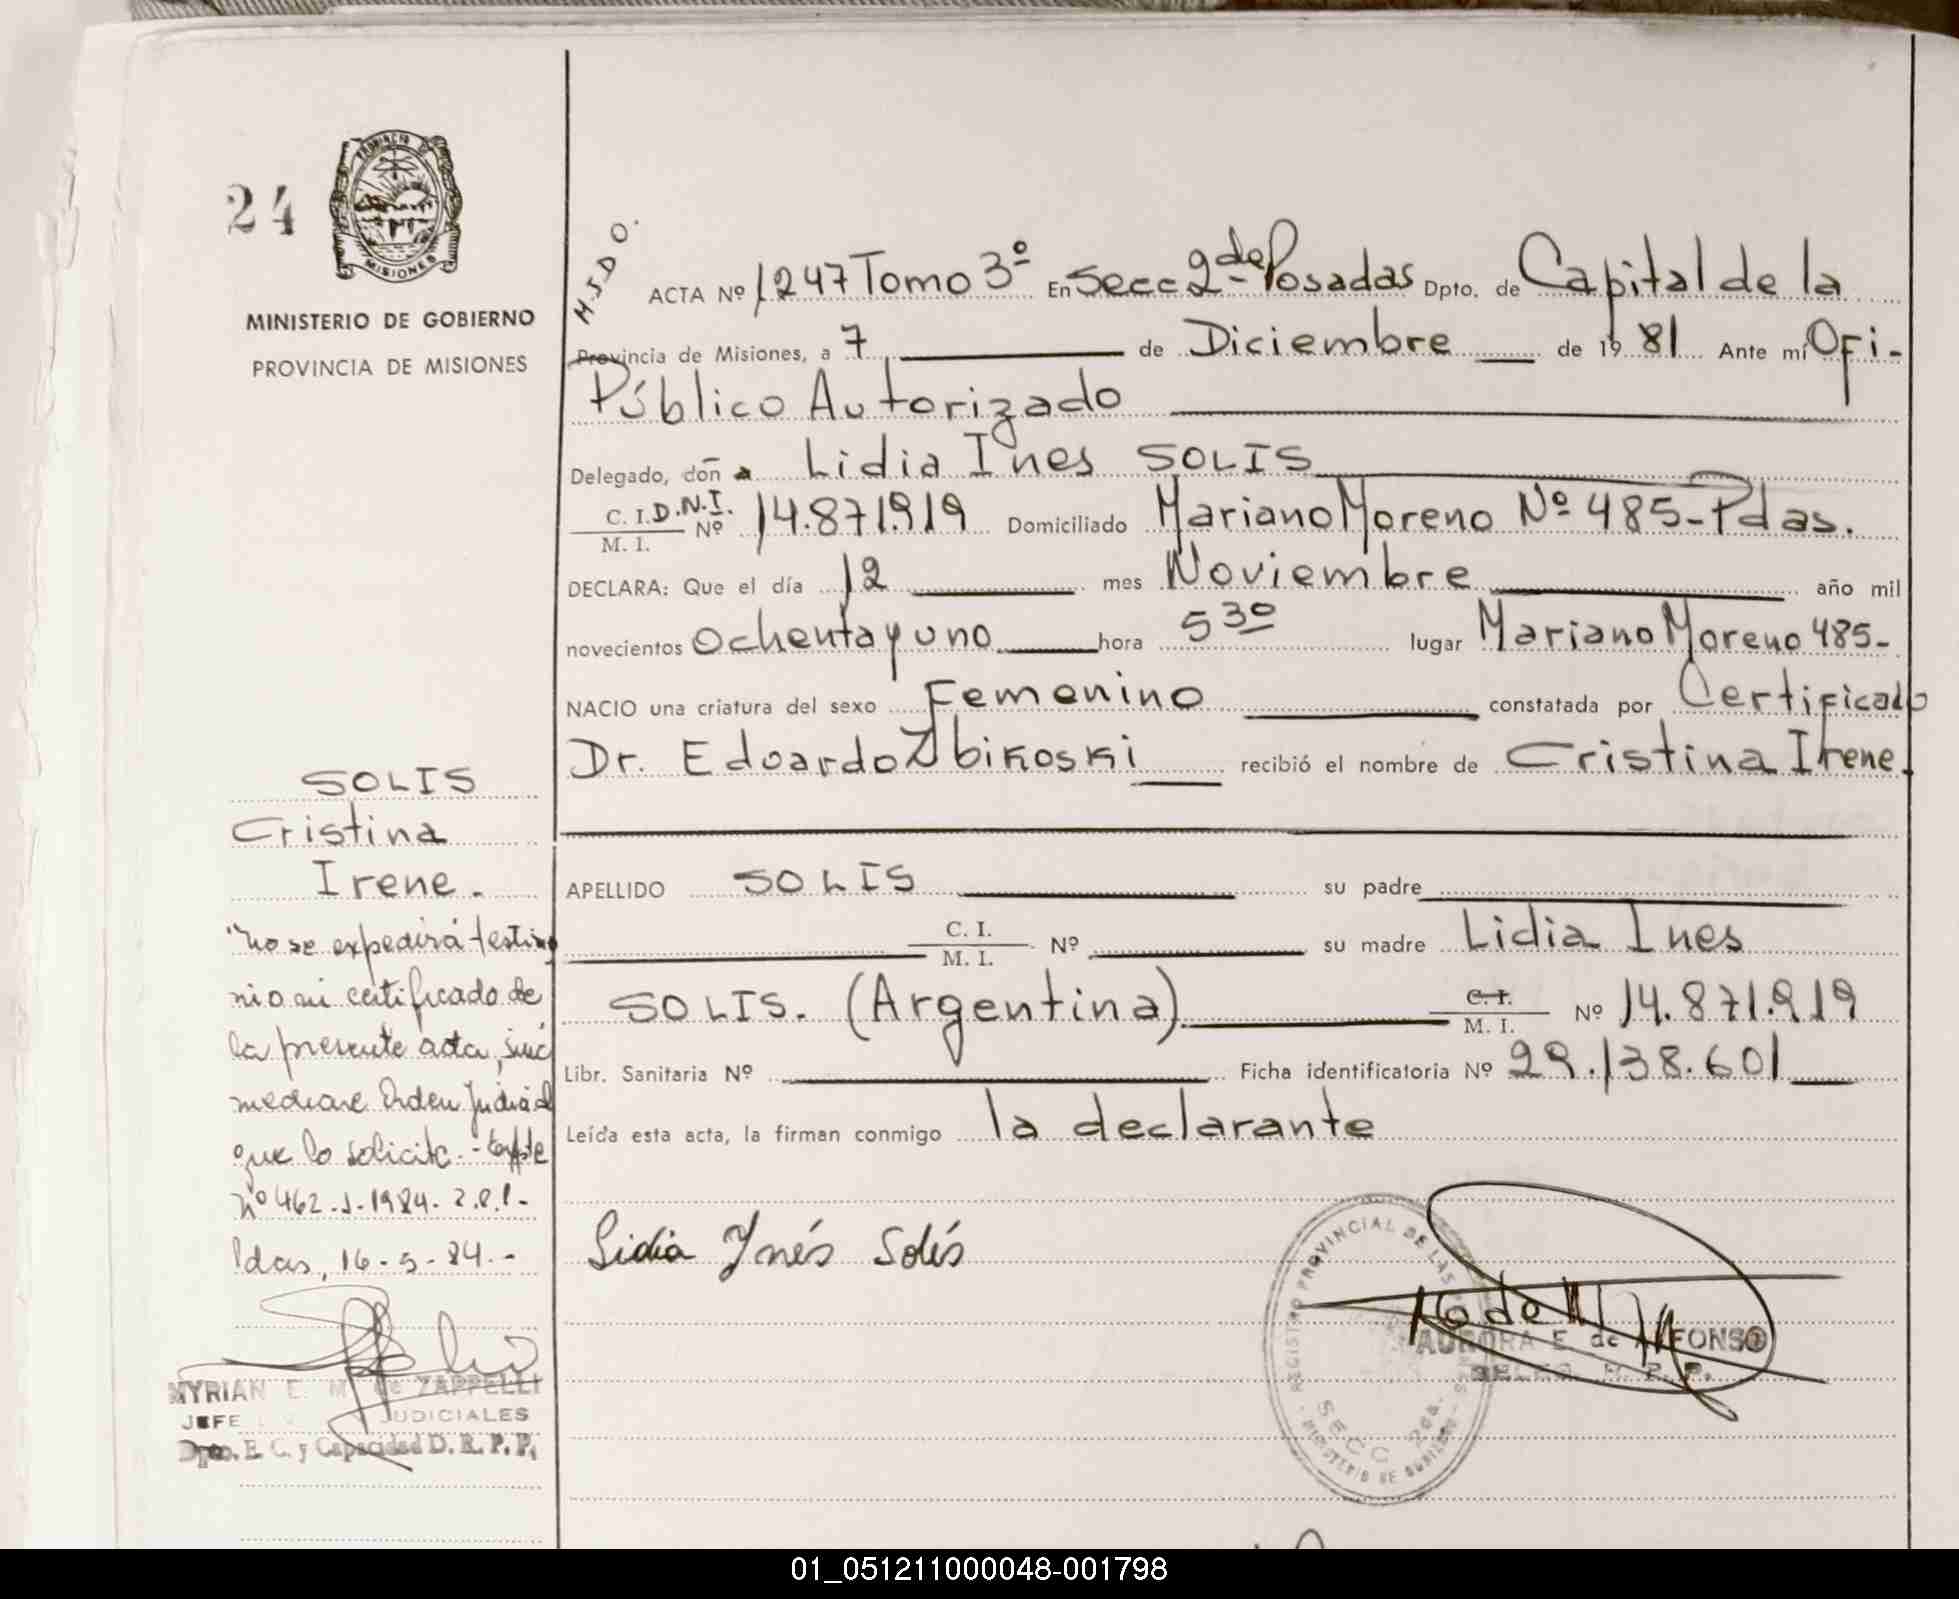 24
PROVINCIA DE
MISIONES
MINISTERIO DE GOBIERNO
PROVINCIA DE MISIONES
M.I.D O.
ACTA Nº 1247 Tomo 3º En Secc 2da de Posadas Dpto. de Capital de la
Provincia de Misiones, a 7 de Diciembre de 1981 Ante mí Ofi-
Público Autorizado
Delegado, doña Lidia Ines SOLIS
C. I. D.N.I. Nº 14.871.919 Domiciliado Mariano Moreno Nº 485-Pdas.
M. I.
DECLARA: Que el día 12 mes Noviembre año mil
novecientos Ochenta y uno hora 5 30 lugar Mariano Moreno 485-
NACIO una criatura del sexo Femenino constatada por Certificado
Dr. Edoardo Zbikoski recibió el nombre de Cristina Irene
APELLIDO SOLIS su padre
C. I.
M. I. Nº su madre Lidia Ines
SOLIS. (Argentina) C. I.
M. I. Nº 14.871.919
Libr. Sanitaria Nº Ficha identificatoria Nº 29.138.601
Leída esta acta, la firman conmigo la declarante
Lidia Ynés Solís
REGISTRO PROVINCIAL DE LAS
SECC 2da.
MINISTERIO DE GOBIERNO
AURORA E. de ALFONSO
SOLIS
Cristina
Irene.
"no se expedirá testimo
nio ni certificado de
la presente acta, sino
mediante Orden Judicial
que lo solicite.-
nº 462-J-1984.
Pdas, 16-5-84.-
MYRIAN E. M. de ZAPPELLI
JEFE JUDICIALES
Dpto. E. C. y Capacidad D. R. P. P.
01_051211000048-001798